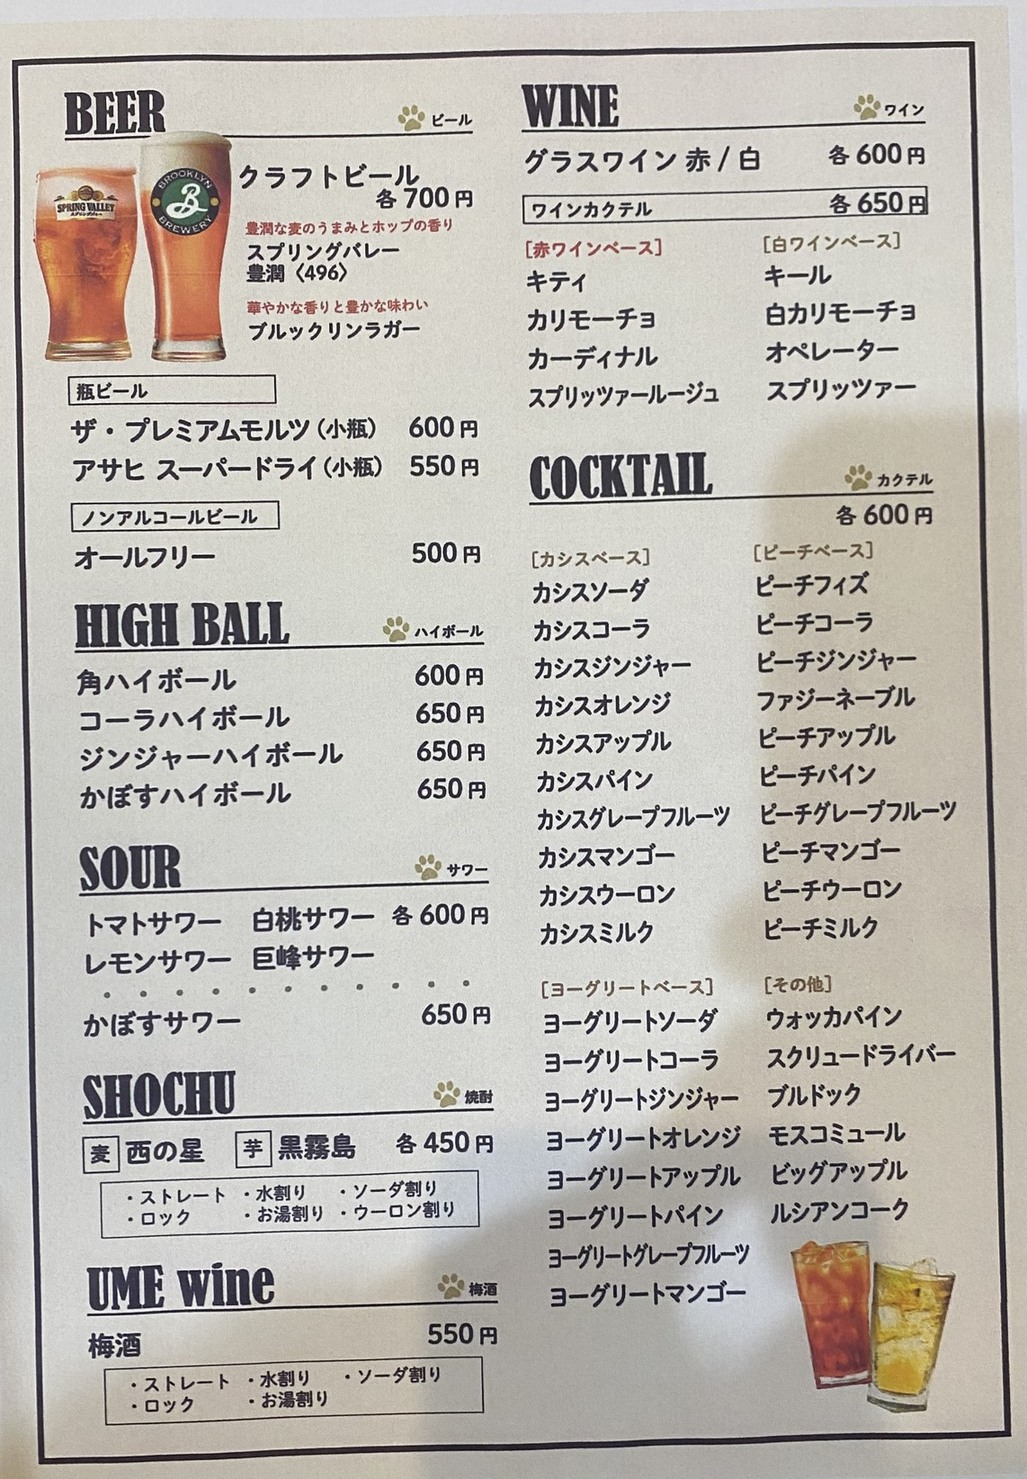 BEER
ビール
SPRING VALLEY
BROOKLYN
B
BREWERY
クラフトビール
各700円
豊潤な麦のうまみとホップの香り
スプリングバレー
豊潤〈496〉
華やかな香りと豊かな味わい
ブルックリンラガー
瓶ビール
ザ・プレミアムモルツ(小瓶) 600円
アサヒ スーパードライ(小瓶) 550円
ノンアルコールビール
オールフリー 500円
HIGH BALL
ハイボール
角ハイボール 600円
コーラハイボール 650円
ジンジャーハイボール 650円
かぼすハイボール 650円
SOUR
サワー
トマトサワー 白桃サワー 各600円
レモンサワー 巨峰サワー
かぼすサワー 650円
SHOCHU
焼酎
麦 西の星 芋 黒霧島 各450円
・ストレート ・水割り ・ソーダ割り
・ロック ・お湯割り ・ウーロン割り
UME wine
梅酒
梅酒 550円
・ストレート ・水割り ・ソーダ割り
・ロック ・お湯割り
WINE
ワイン
グラスワイン 赤/白 各600円
ワインカクテル 各650円
[赤ワインベース]
キティ
カリモーチョ
カーディナル
スプリッツァールージュ
[白ワインベース]
キール
白カリモーチョ
オペレーター
スプリッツァー
COCKTAIL
カクテル
各600円
[カシスベース]
カシスソーダ
カシスコーラ
カシスジンジャー
カシスオレンジ
カシスアップル
カシスパイン
カシスグレープフルーツ
カシスマンゴー
カシスウーロン
カシスミルク
[ピーチベース]
ピーチフィズ
ピーチコーラ
ピーチジンジャー
ファジーネーブル
ピーチアップル
ピーチパイン
ピーチグレープフルーツ
ピーチマンゴー
ピーチウーロン
ピーチミルク
[ヨーグリートベース]
ヨーグリートソーダ
ヨーグリートコーラ
ヨーグリートジンジャー
ヨーグリートオレンジ
ヨーグリートアップル
ヨーグリートパイン
ヨーグリートグレープフルーツ
ヨーグリートマンゴー
[その他]
ウォッカパイン
スクリュードライバー
ブルドック
モスコミュール
ビッグアップル
ルシアンコーク